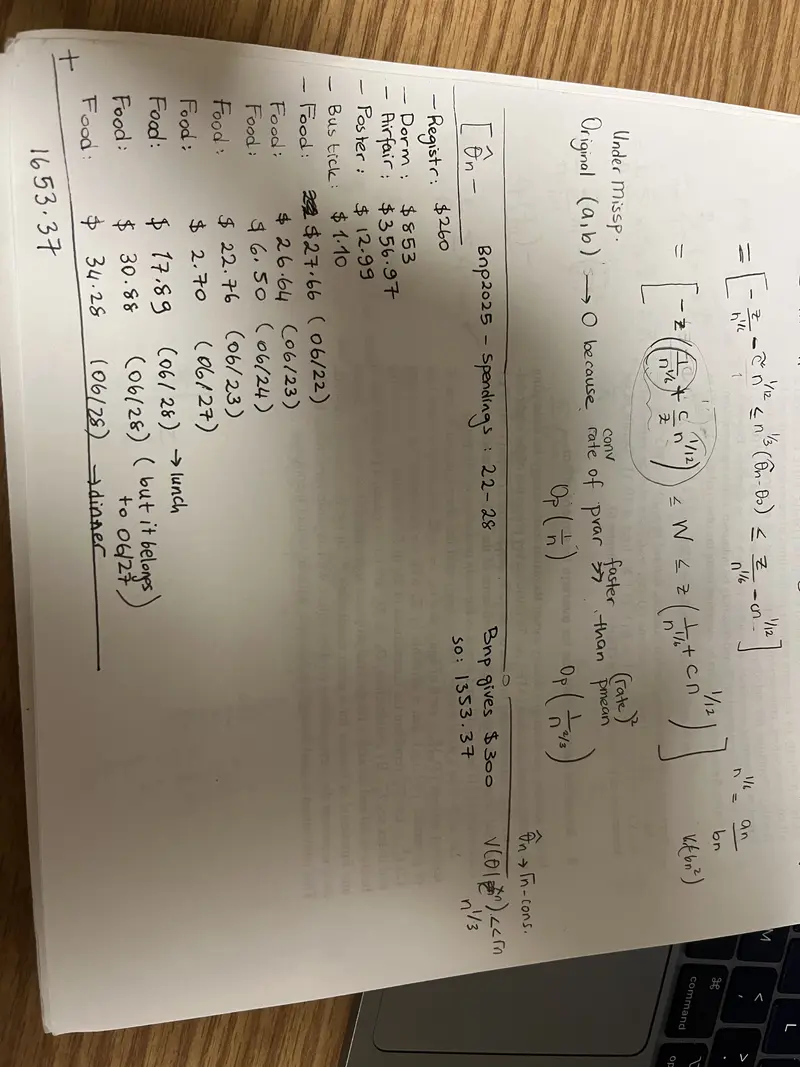 = [ - z/n^{1/6} - c n^{1/12} ≤ n^{1/3} (θ̂n - θ0) ≤ z/n^{1/6} - cn^{1/12} ]
n^{1/6} = an/bn
= [ - z ( 1/n^{1/6} + c/z n^{1/12} ) ≤ W ≤ z ( 1/n^{1/6} + c n^{1/12} ) ]
(bn²)
Under missp.
Original (a,b) → 0 because conv rate of pvar faster >> than (rate)² pmean
Op (1/n) Op (1/n^{2/3})
θ̂n → √n-cons.
[ θ̂n -
V(θ| xn) << √n
n^{1/3}
Bnp2025 - spendings : 22-28
Bnp gives $300
so: 1353.37
- Registr: $260
- Dorm: $853
- Airfair: $356.97
- Poster: $12.99
- Bus tick: $1.10
- Food: $27.66 (06/22)
Food: $26.64 (06/23)
Food: $6.50 (06/24)
Food: $22.76 (06/23)
Food: $2.70 (06/27)
Food: $17.89 (06/28) → lunch
Food: $30.88 (06/28) (but it belongs to 06/27)
Food: $34.28 (06/28) → dinner
+
1653.37
M
<
,
>
.
L
⌘
command